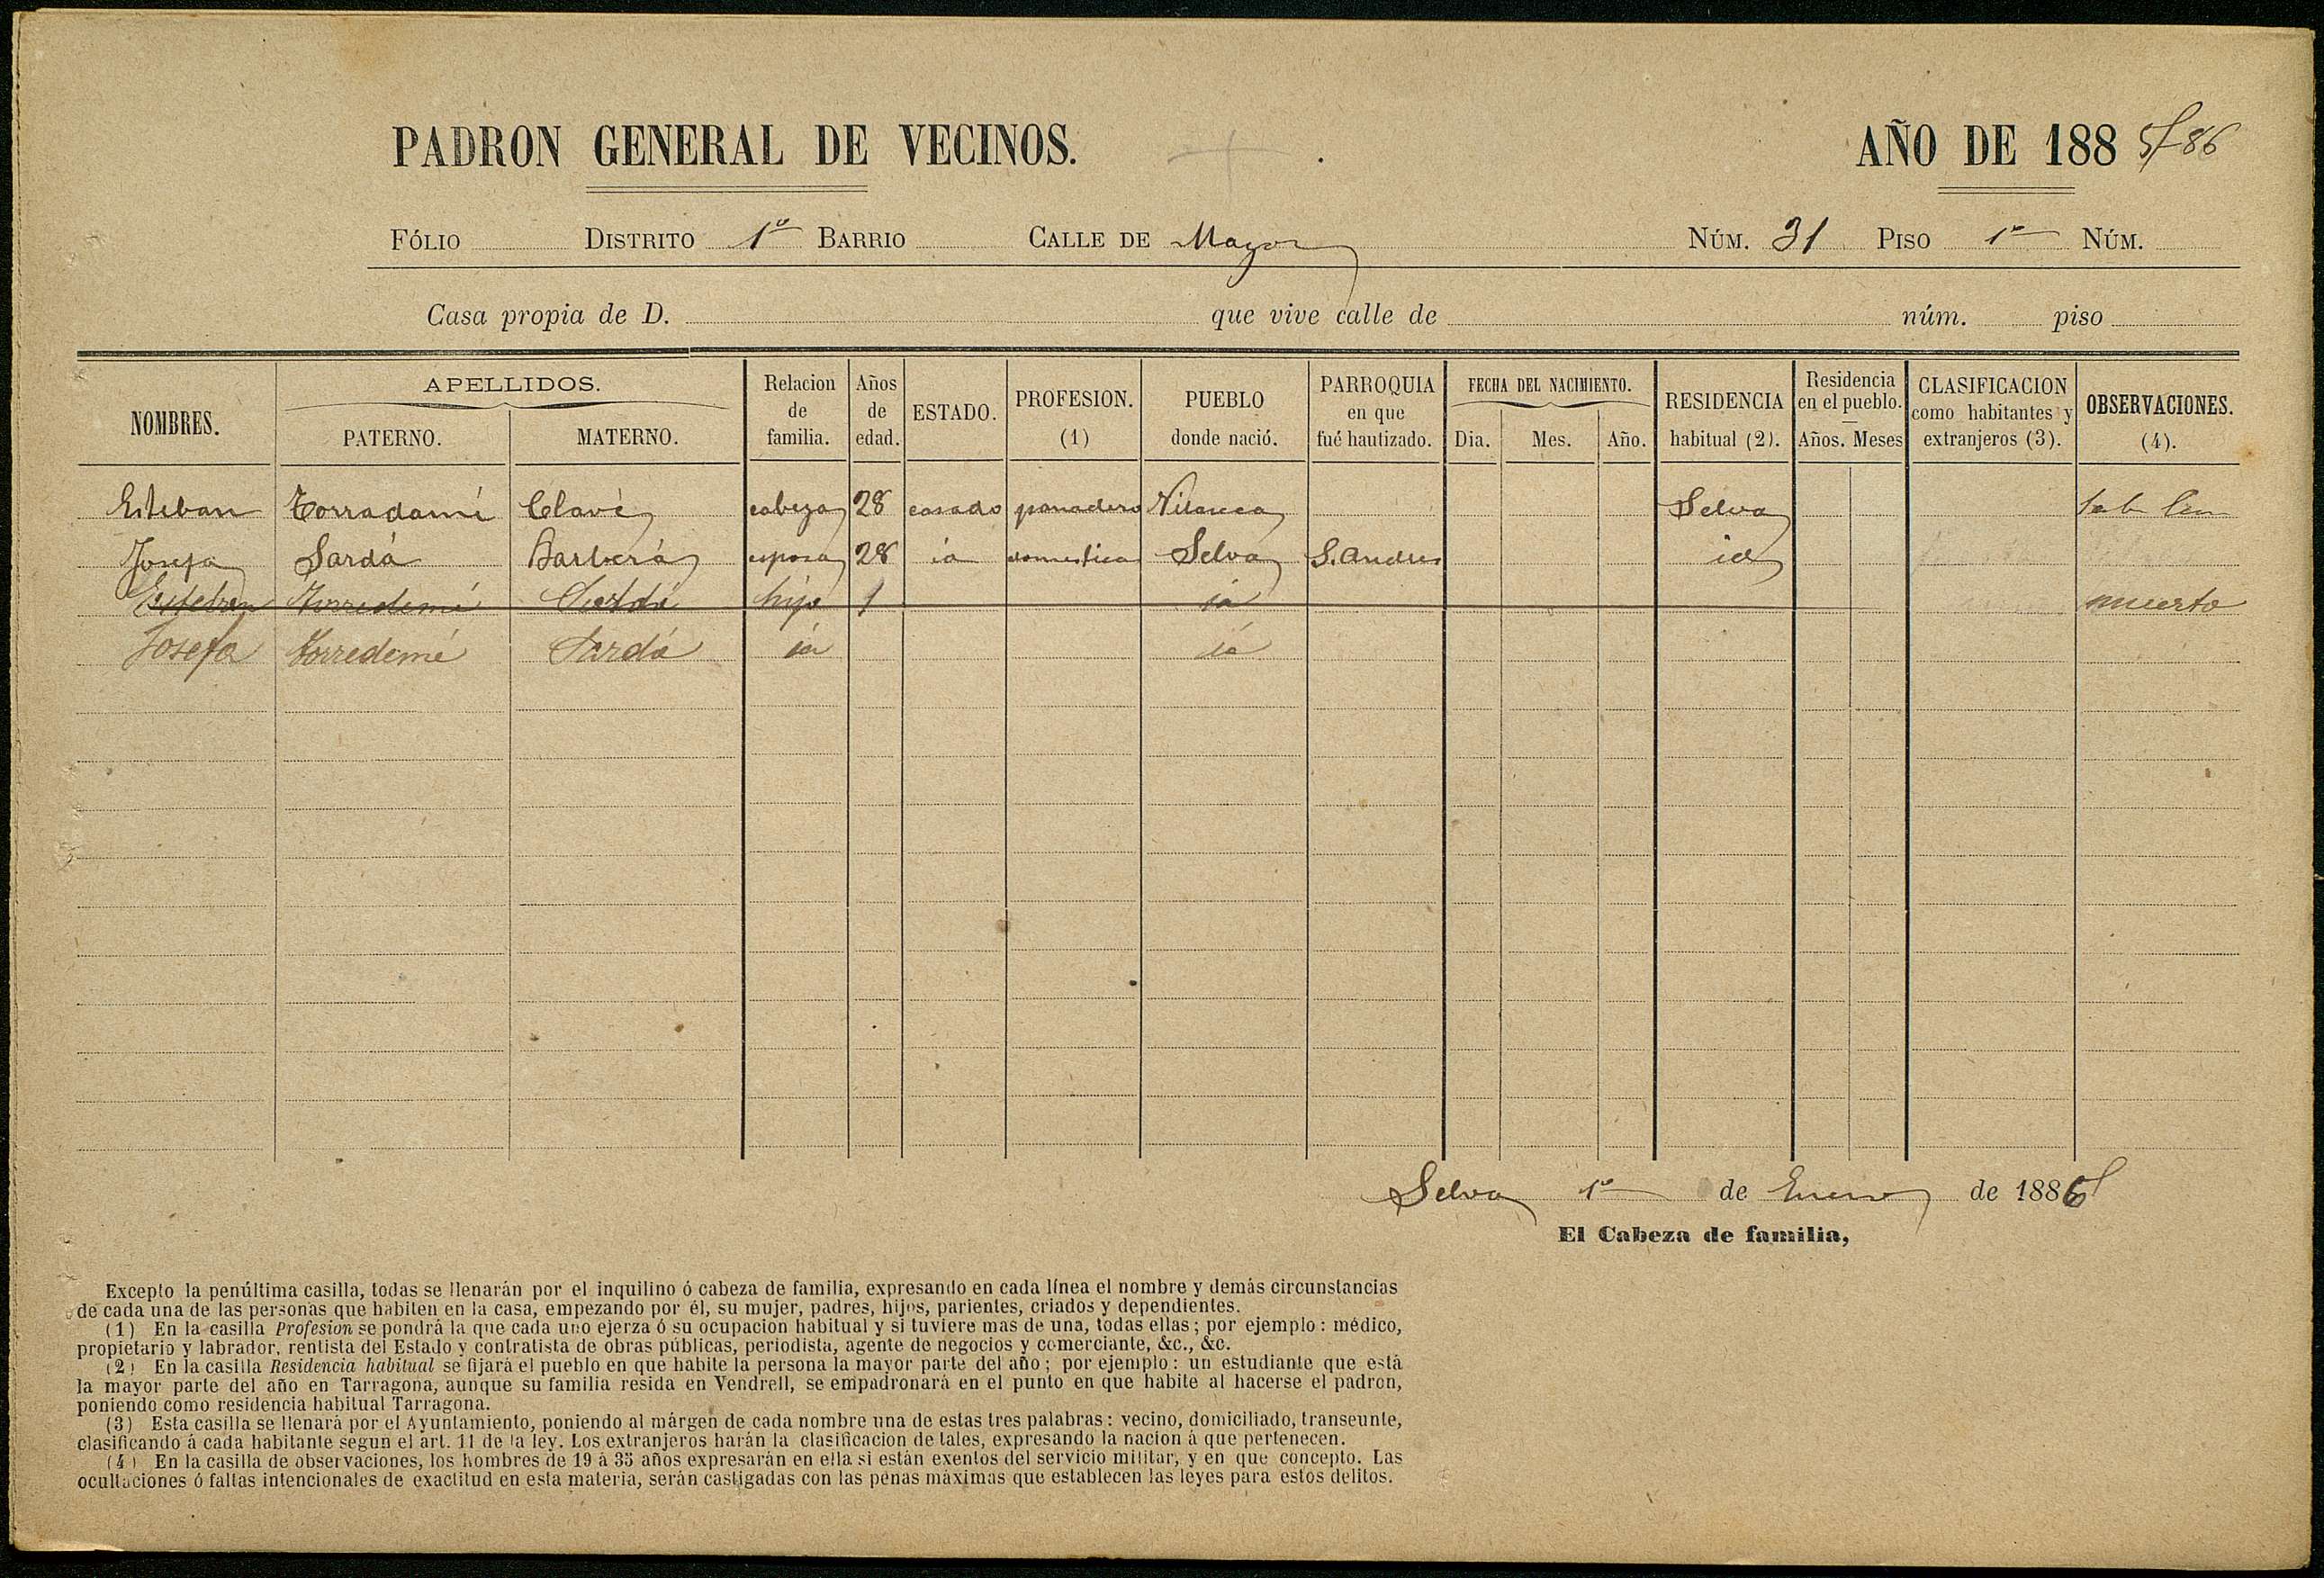 PADRON GENERAL DE VECINOS. AÑO DE 188 5/86
FÓLIO DISTRITO 1º BARRIO CALLE DE Mayor NÚM. 31 PISO 1º NÚM.
Casa propia de D. que vive calle de núm. piso
NOMBRES. APELLIDOS. PATERNO. MATERNO. Relacion de familia. Años de edad. ESTADO. PROFESION. (1) PUEBLO donde nació. PARROQUIA en que fué bautizado. FECHA DEL NACIMIENTO. Dia. Mes. Año. RESIDENCIA habitual (2). Residencia en el pueblo. Años. Meses CLASIFICACION como habitantes y extranjeros (3). OBSERVACIONES. (4).
Esteban Torradamé Clavé cabeza 28 casado panadero Selva
Josefa Sardá Barberá esposa 28 id domestica Selva S. Andres id
Esteban Torredemé Sardá hijo 1 id muerto
Josefa Torredemé Sardá id id
Selva 1º de Enero de 1886
El Cabeza de familia,
Excepto la penúltima casilla, todas se llenarán por el inquilino ó cabeza de familia, expresando en cada línea el nombre y demás circunstancias
de cada una de las personas que habiten en la casa, empezando por él, su mujer, padres, hijos, parientes, criados y dependientes.
(1) En la casilla Profesion se pondrá la que cada uno ejerza ó su ocupacion habitual y si tuviere mas de una, todas ellas; por ejemplo: médico,
propietario y labrador, rentista del Estado y contratista de obras públicas, periodista, agente de negocios y comerciante, &c., &c.
(2) En la casilla Residencia habitual se fijará el pueblo en que habite la persona la mayor parte del año; por ejemplo: un estudiante que está
la mayor parte del año en Tarragona, aunque su familia resida en Vendrell, se empadronará en el punto en que habite al hacerse el padron,
poniendo como residencia habitual Tarragona.
(3) Esta casilla se llenará por el Ayuntamiento, poniendo al márgen de cada nombre una de estas tres palabras: vecino, domiciliado, transeunte,
clasificando á cada habitante segun el art. 11 de la ley. Los extranjeros harán la clasificacion de tales, expresando la nacion á que pertenecen.
(4) En la casilla de observaciones, los hombres de 19 á 35 años expresarán en ella si están exentos del servicio militar, y en que concepto. Las
ocultaciones ó faltas intencionales de exactitud en esta materia, serán castigadas con las penas máximas que establecen las leyes para estos delitos.